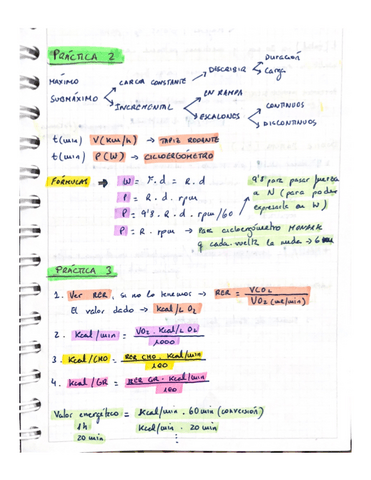 PRÁCTICA 2
MÁXIMO
SUBMÁXIMO
CARGA CONSTANTE → DESCRIBIR
Duración
Carga
INCREMENTAL
EN RAMPA
ESCALONES
CONTINUOS
DISCONTINUOS
t(min) V(Km/h) → TAPIZ RODANTE
t(min) P(W) → CICLOERGÓMETRO
FÓRMULAS → W = F.d = R.d
P = R.d.rpm
P = 9'8.R.d.rpm/60
P = R.rpm →
9'8 para pasar
a N (para poder
expresarlo en W)
Para cicloergómetro MONARK
q cada vuelta la rueda → 6m
PRÁCTICA 3
1. Ver RER, si no lo tenemos → RER = VCO2 / VO2 (ml/min)
El valor dado → Kcal/L O2
2. Kcal/min = VO2 . Kcal/L O2 / 1000
3. Kcal/CHO = RER CHO . Kcal/min / 100
4. Kcal/GR = RER GR . Kcal/min / 100
Valor energético = Kcal/min . 60 min (conversión)
1h
20 min
Kcal/min . 20 min